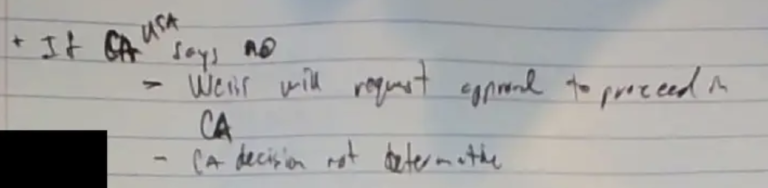 + If CA USA says no
- Weiss will request approval to proceed in
CA
- CA decision not determative